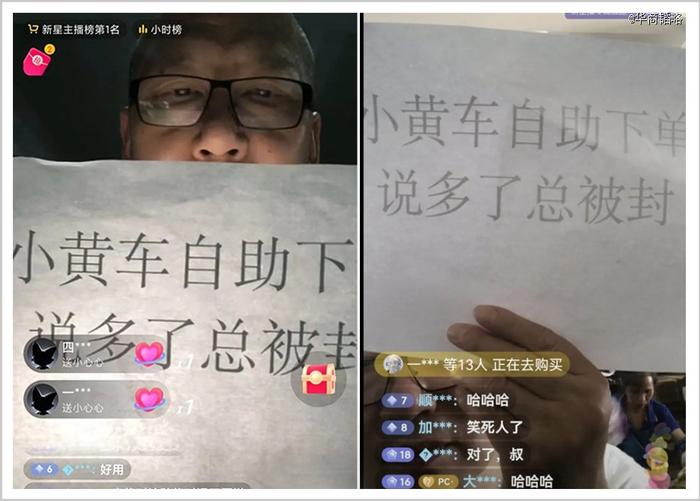 @华商韬略
新星主播榜第1名
小时榜
2
小黄车自助下
说多了总被封
四***
送小心心
x1
一***
送小心心
x1
6 ***: 好用
小黄车自助下单
说多了总被封
一*** 等13人 正在去购买
7 顺***: 哈哈哈
8 加***: 笑死人了
18 �***: 对了，叔
16 PC· 大***: 哈哈哈